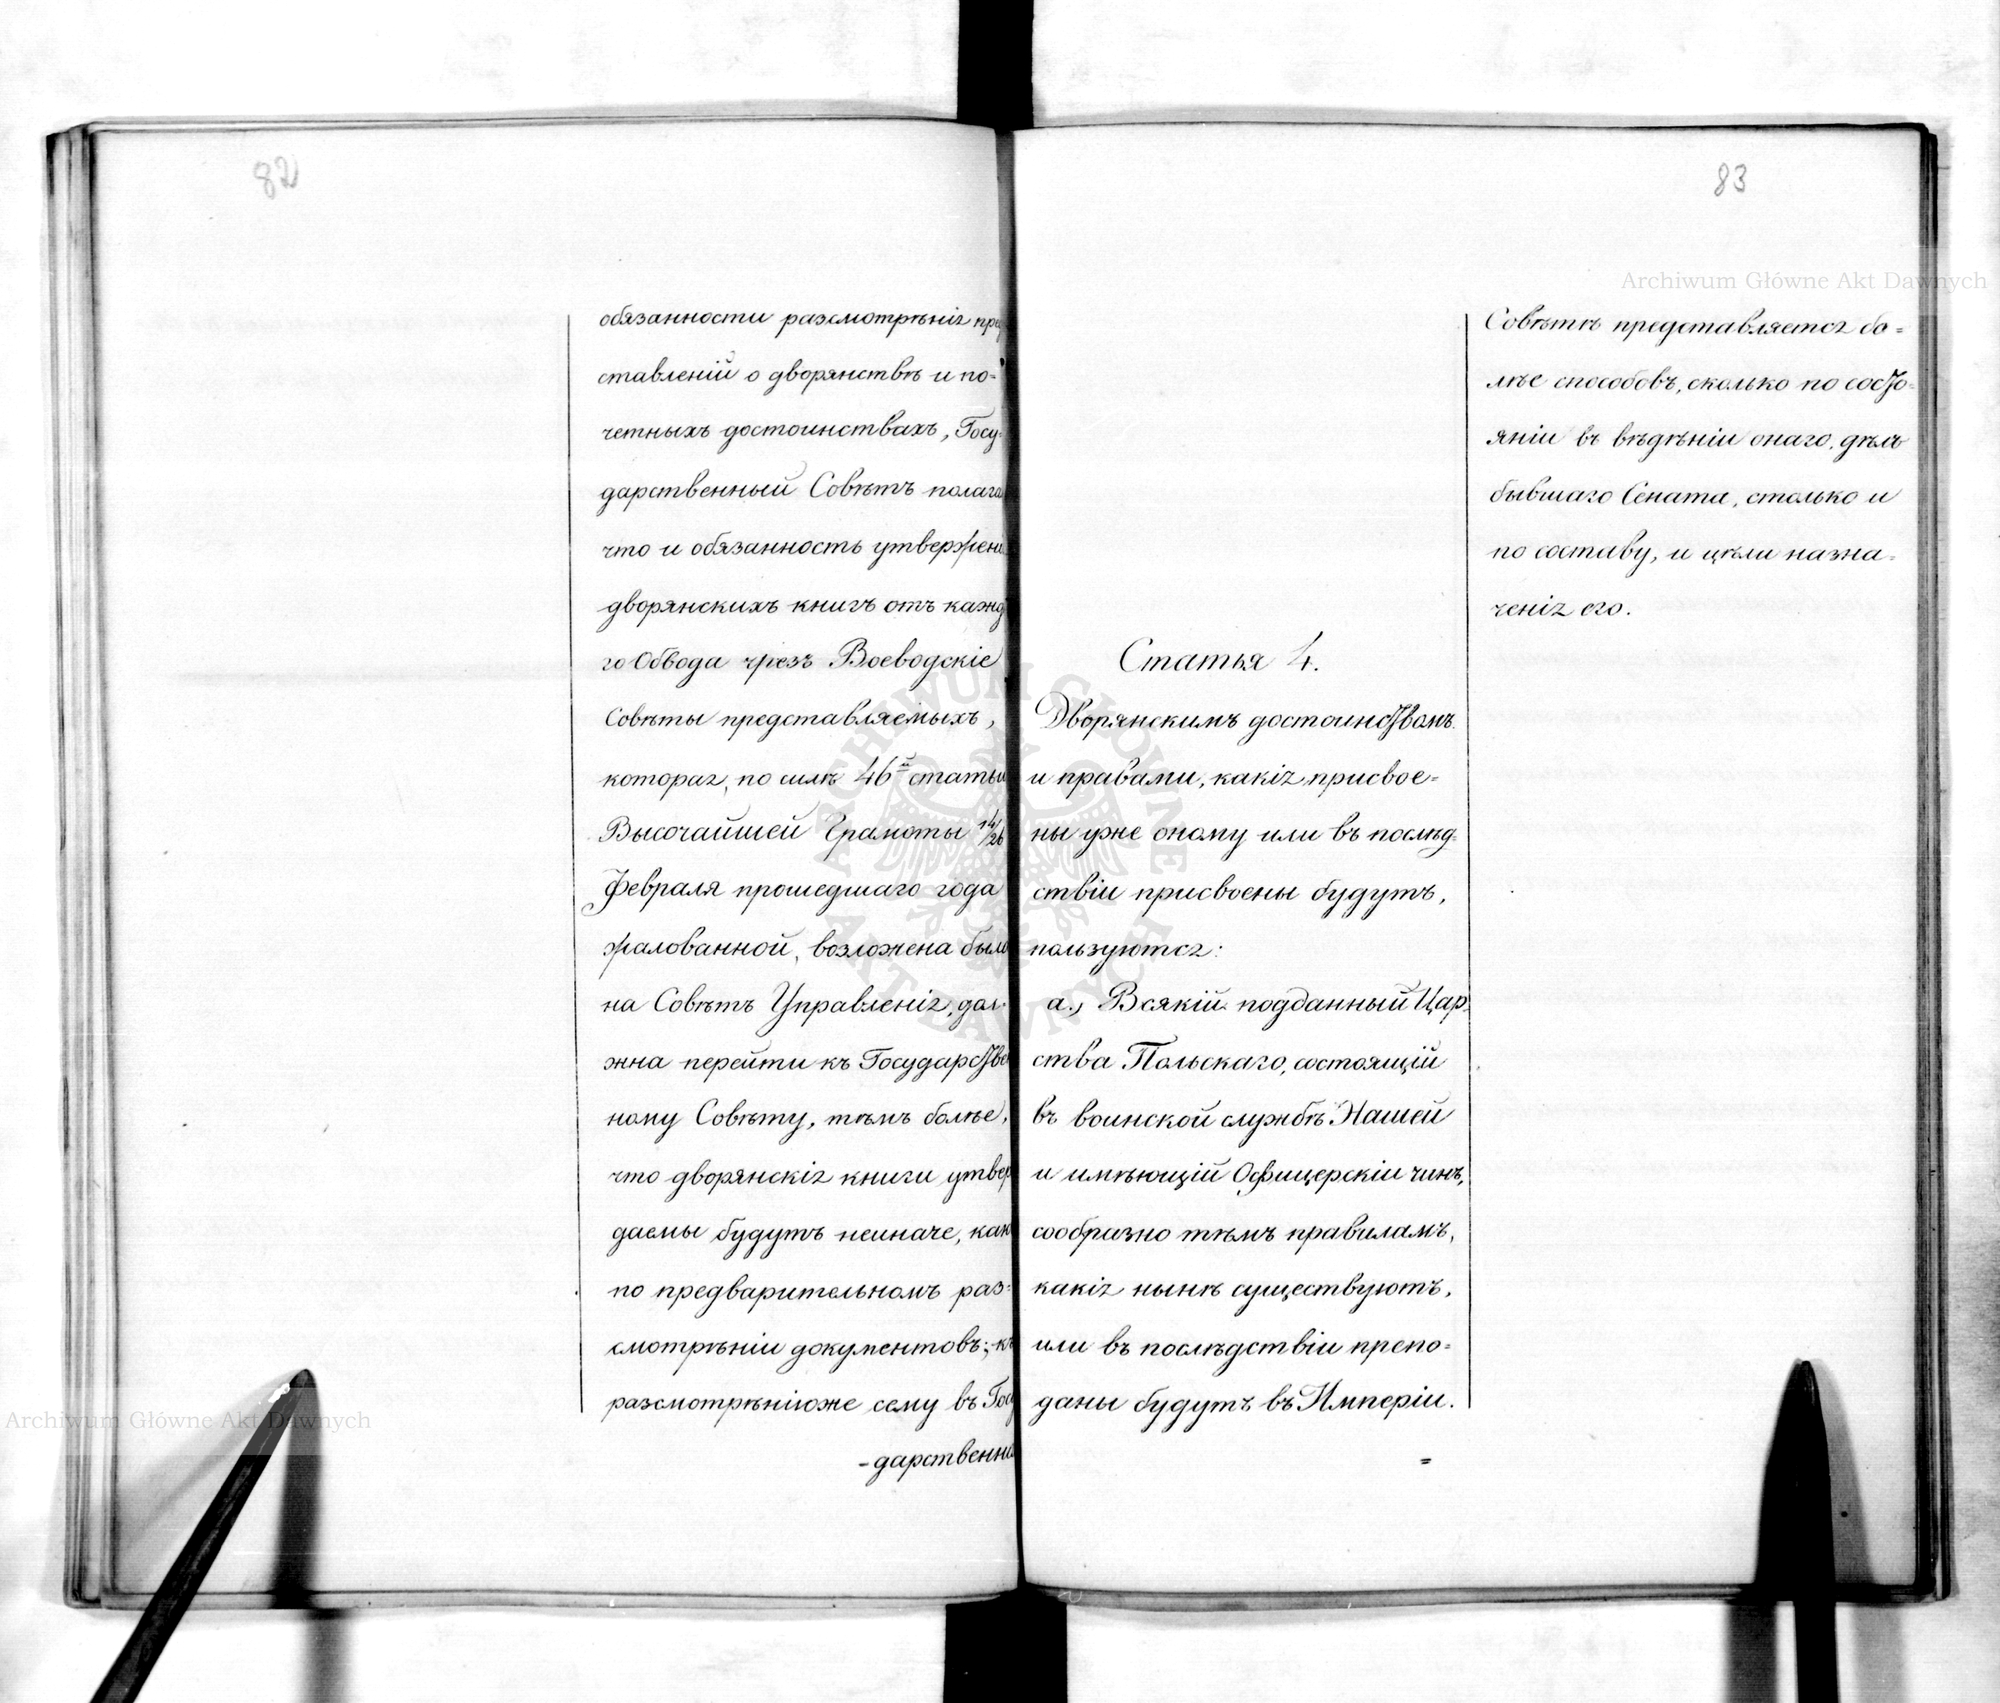 82
обязанности разсмотрѣнія пред
ставленій о дворянствѣ и по-
четныхъ достоинствахъ, Госу-
дарственный Совѣтъ полага
что и обязанность утвержени
дворянскихъ книгъ отъ кажд
го Обвода чрезъ Воеводскіе
Совѣты представляемыхъ,
которая, по силѣ 46й статьи
Высочайшей Грамоты 14/26
Февраля прошедшаго года
жалованной, возложена была
на Совѣтъ Управленія, дол-
жна перейти къ Государстве
ному Совѣту, тѣмъ болѣе,
что дворянскія книги утвер
даемы будутъ неиначе, как
по предварительномъ раз-
смотрѣніи документовъ; къ
разсмотрѣніюже сему въ Госу
-дарственно
83
Archiwum Główne Akt Dawnych
Совѣтѣ представляется бо=
лѣе способовъ, сколько по состо-
яніи въ вѣдѣніи онаго, дѣлъ
бывшаго Сената, столько и
по составу, и цѣли назна-
ченія его.
Статья 4.
Дворянскимъ достоинствомъ
и правами, какія присвое=
ны уже оному или въ послѣд-
ствіи присвоены будутъ,
пользуются:
а., Всякій подданный Цар-
ства Польскаго, состоящій
въ воинской службѣ Нашей
и имѣющій Офицерскій чинъ,
сообразно тѣмъ правиламъ,
какія нынѣ существуютъ,
или въ послѣдствіи препо=
даны будутъ въ Имперіи.
=
ARCHIWUM GŁÓWNE AKT DAWNYCH
Archiwum Główne Akt Dawnych